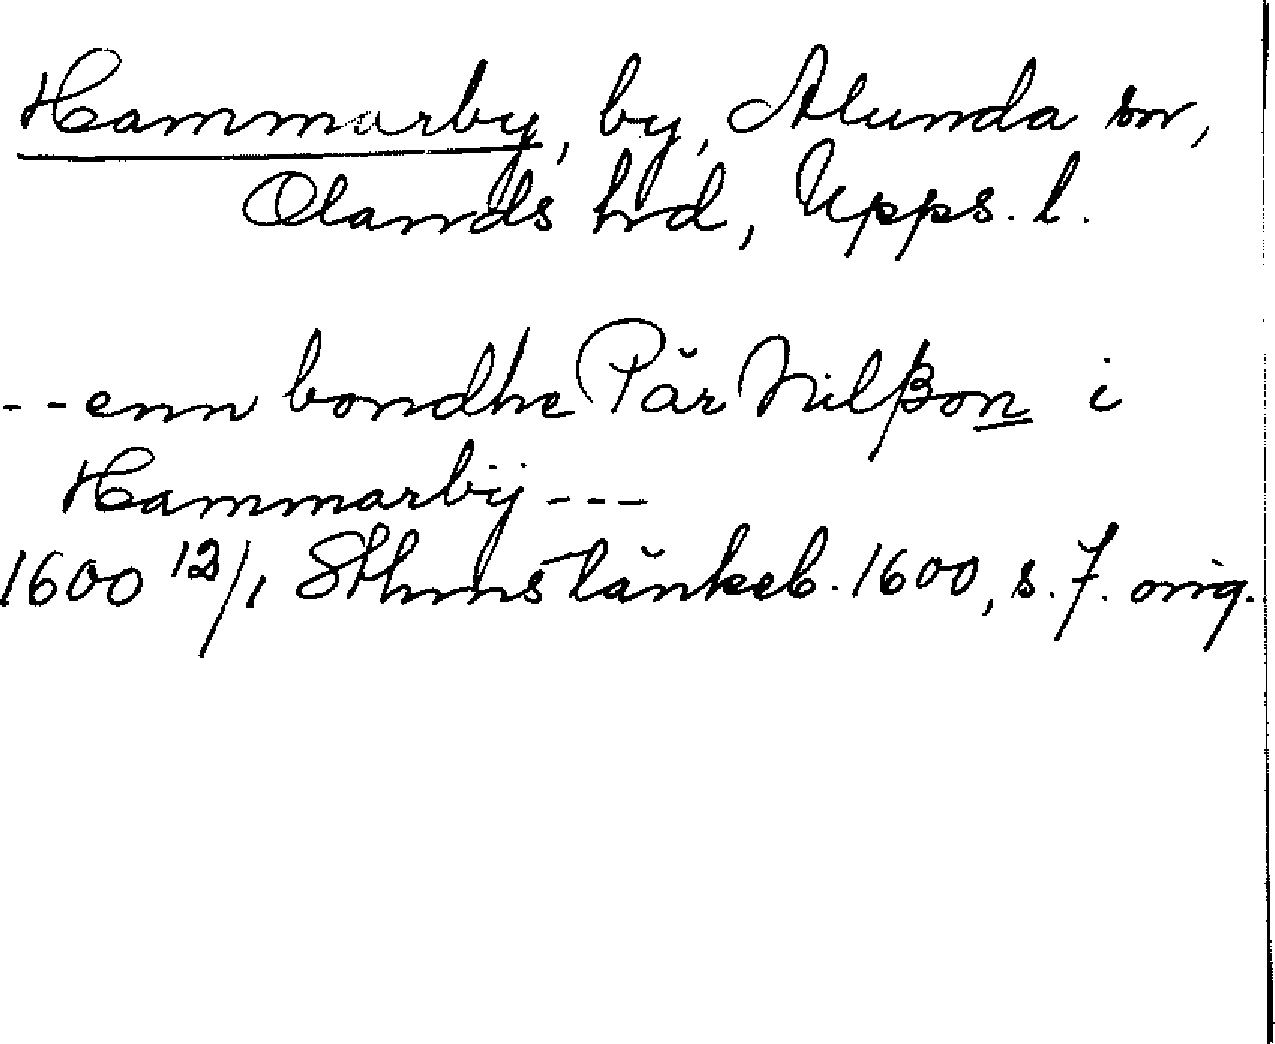 Hammarby, by, Alunda sn,
Olands hd, Upps. l.
--enn bondhe Pär Nilßon i
Hammarbÿ---
1600 12/1 Sthms tänkeb. 1600, s. 7. orig.